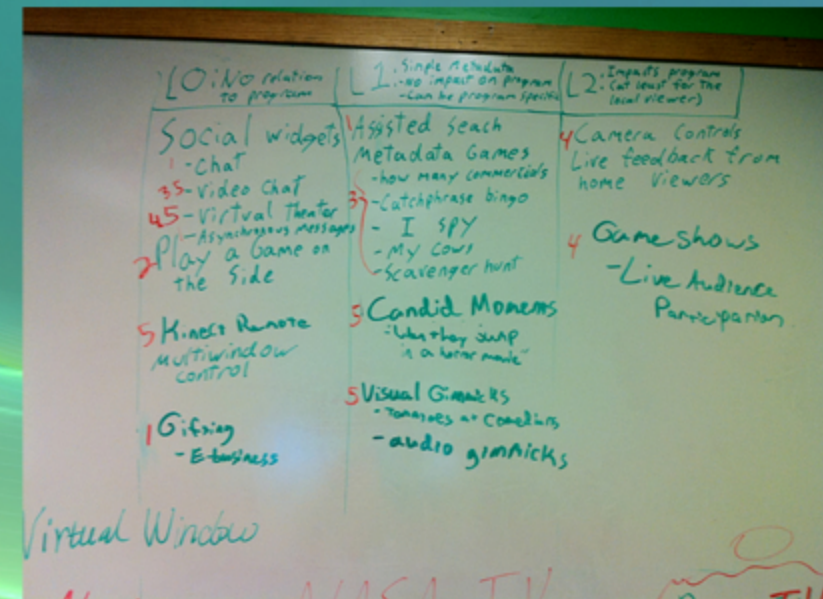 L0: No relation
to program
Social widgets
1 - Chat
3.5 - Video Chat
4.5 - Virtual Theater
- Asynchronous messages
2 Play a Game on
the Side
5 Kinect Remote
Multiwindow
control
1 Gifting
- E-business
L1: Simple Metadata
- No impact on program
- Can be program specific
1 Assisted Seach
Metadata Games
- how many commercials
3 - Catchphrase bingo
- I SPY
- My Cows
- Scavenger hunt
5 Candid Moments
- "When they jump
in a horror movie"
5 Visual Gimmicks
- Tomatoes at Comedians
- audio gimmicks
L2: Impacts program
(at least for the
local viewer)
4 Camera Controls
Live feedback from
home viewers
4 Game shows
- Live Audience
Participation
Virtual Window
NASA TV
TV